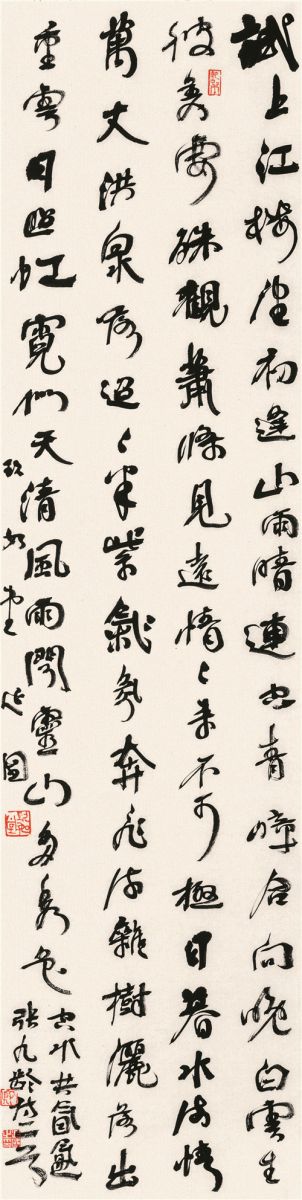 試上江樓望初逢山雨晴連空青嶂合向晚白雲生
彼美要殊觀蕭條見遠情〻来不可極日暮水流清
萬丈洪泉落迢〻半紫氣氛奔飛流雜樹灑落出
重雲日照虹霓似天清風雨聞靈山多秀色
空水共氤氳
張九齡詩二首
如堂